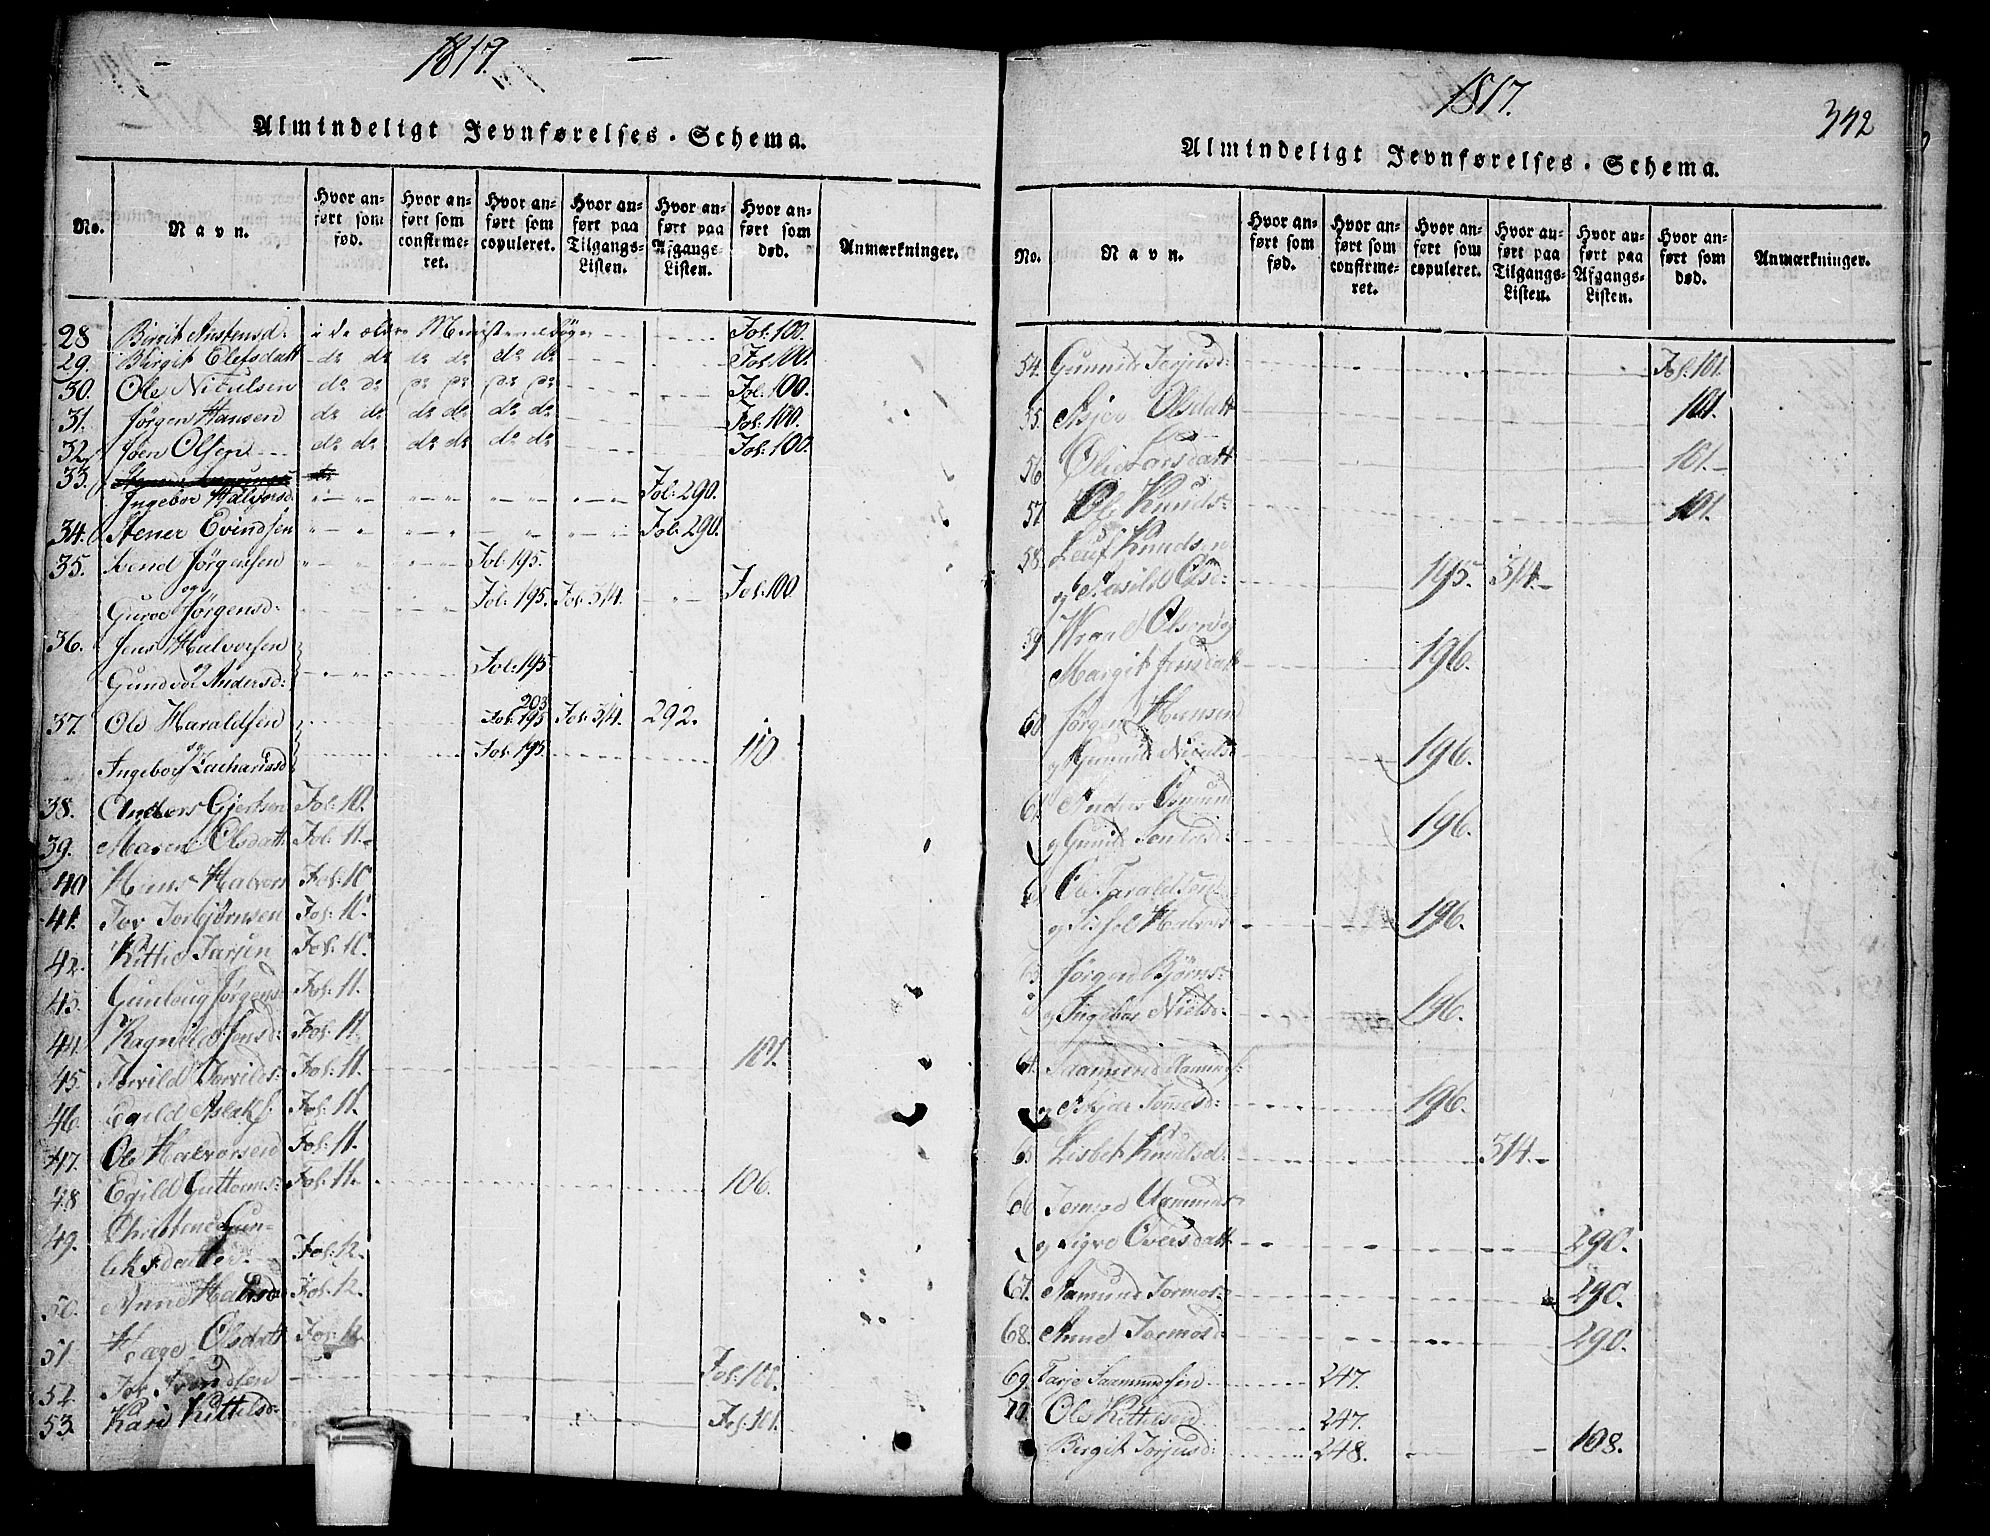 1817.
Almindeligt Jevnførelses-Schema.
No.
Navn.
Hvor anført som fød.
Hvor anført som confirmeret.
Hvor anført som copuleret.
Hvor anført paa Tilgangs-Listen.
Hvor anført paa Afgangs-Listen.
Hvor anført som død.
Anmærkninger.
28 Birgit Austensd: i de ældre Ministerialbøger Fol: 100.
29. Birgit Elefsdatt do do do do do do Fol: 100.
30. Ole Niculsen do do do do do do Fol: 100.
31. Jørgen Hansen do do do do do do Fol: 100.
32. Joen Olsen do do do do do do Fol: 100.
33. Ingebor Halvorsd. Fol: 290.
34. Stener Evindsen Fol: 290.
35. Svend Jørgensen Fol: 195.
og
Guroe Jørgensd: Fol: 195. Fol: 314. Fol: 100
36. Jens Halvorsen
og
Gundvor Andersd: Fol: 195
37. Ole Haraldsen 203 Fol: 195 Fol: 314. 292.
og
Ingebor Zachariasd Fol: 195. 110
38. Anders Gjertsen Fol: 10.
39. Maren Olsdatt Fol: 11.
40 Hans Halvors Fol: 10
41. Tor Torbjørnsen Fol: 11.
42. Kittil Tarjen Fol: 10
43. Gunloug Jørgens Fol: 11.
44. Ragnild Jensd: Fol: 11.
45. Torvild Torvilds: Fol: 11. 107.
46. Egild Aslaks: Fol: 11.
47. Ole Halvorsen Fol: 11.
48 Egild Guttorms: Fol: 11. 106.
49. Christene Gun-
leksdatter. Fol: 12.
50. Anne Halvsd Fol: 12.
51 Hæge Olsdatt Fol: 12
52. Tor Trondsen Fol: 100.
53. Kari Kittilsd: Fol: 101.
1817.
342
Almindeligt Jevnførelses-Schema.
No.
Navn.
Hvor anført som fød.
Hvor anført som confirmeret.
Hvor anført som copuleret.
Hvor anført paa Tilgangs-Listen.
Hvor anført paa Afgangs-Listen.
Hvor anført som død.
Anmærkninger.
54. Gunnild Terjusd: Fol: 101.
55. Asjer Olsdatt 101.
56 Olie Larsdatt 101.
57 Ole Knuds: 101.
58. Leuf Knudsen
og Aasild Olsd: 195. 314.
59 Olsen og
Margit Jensdatt 196.
60 Jørgen Hansen
og Gunild Niculsd 196.
61. Anders Osmund
og Gunild 196.
62 Ole Taraldsen
og Sissel Halvors 196.
63 Jørgen Bjørns:
og Ingebor Nielsd: 196.
64. Saamund Aamunds:
og Asjer Tomesd: 196.
65 Lisbet Knutsd. 314.
66 Aamunds
og Sigre Oversdatt 290.
67. Aamund Tormos: 290.
68. Anne Tormosd. 290.
69. Tarje Saamundsen 247.
70. Ole Kittelsen 247.
Birgit Torjusd: 248. 108.